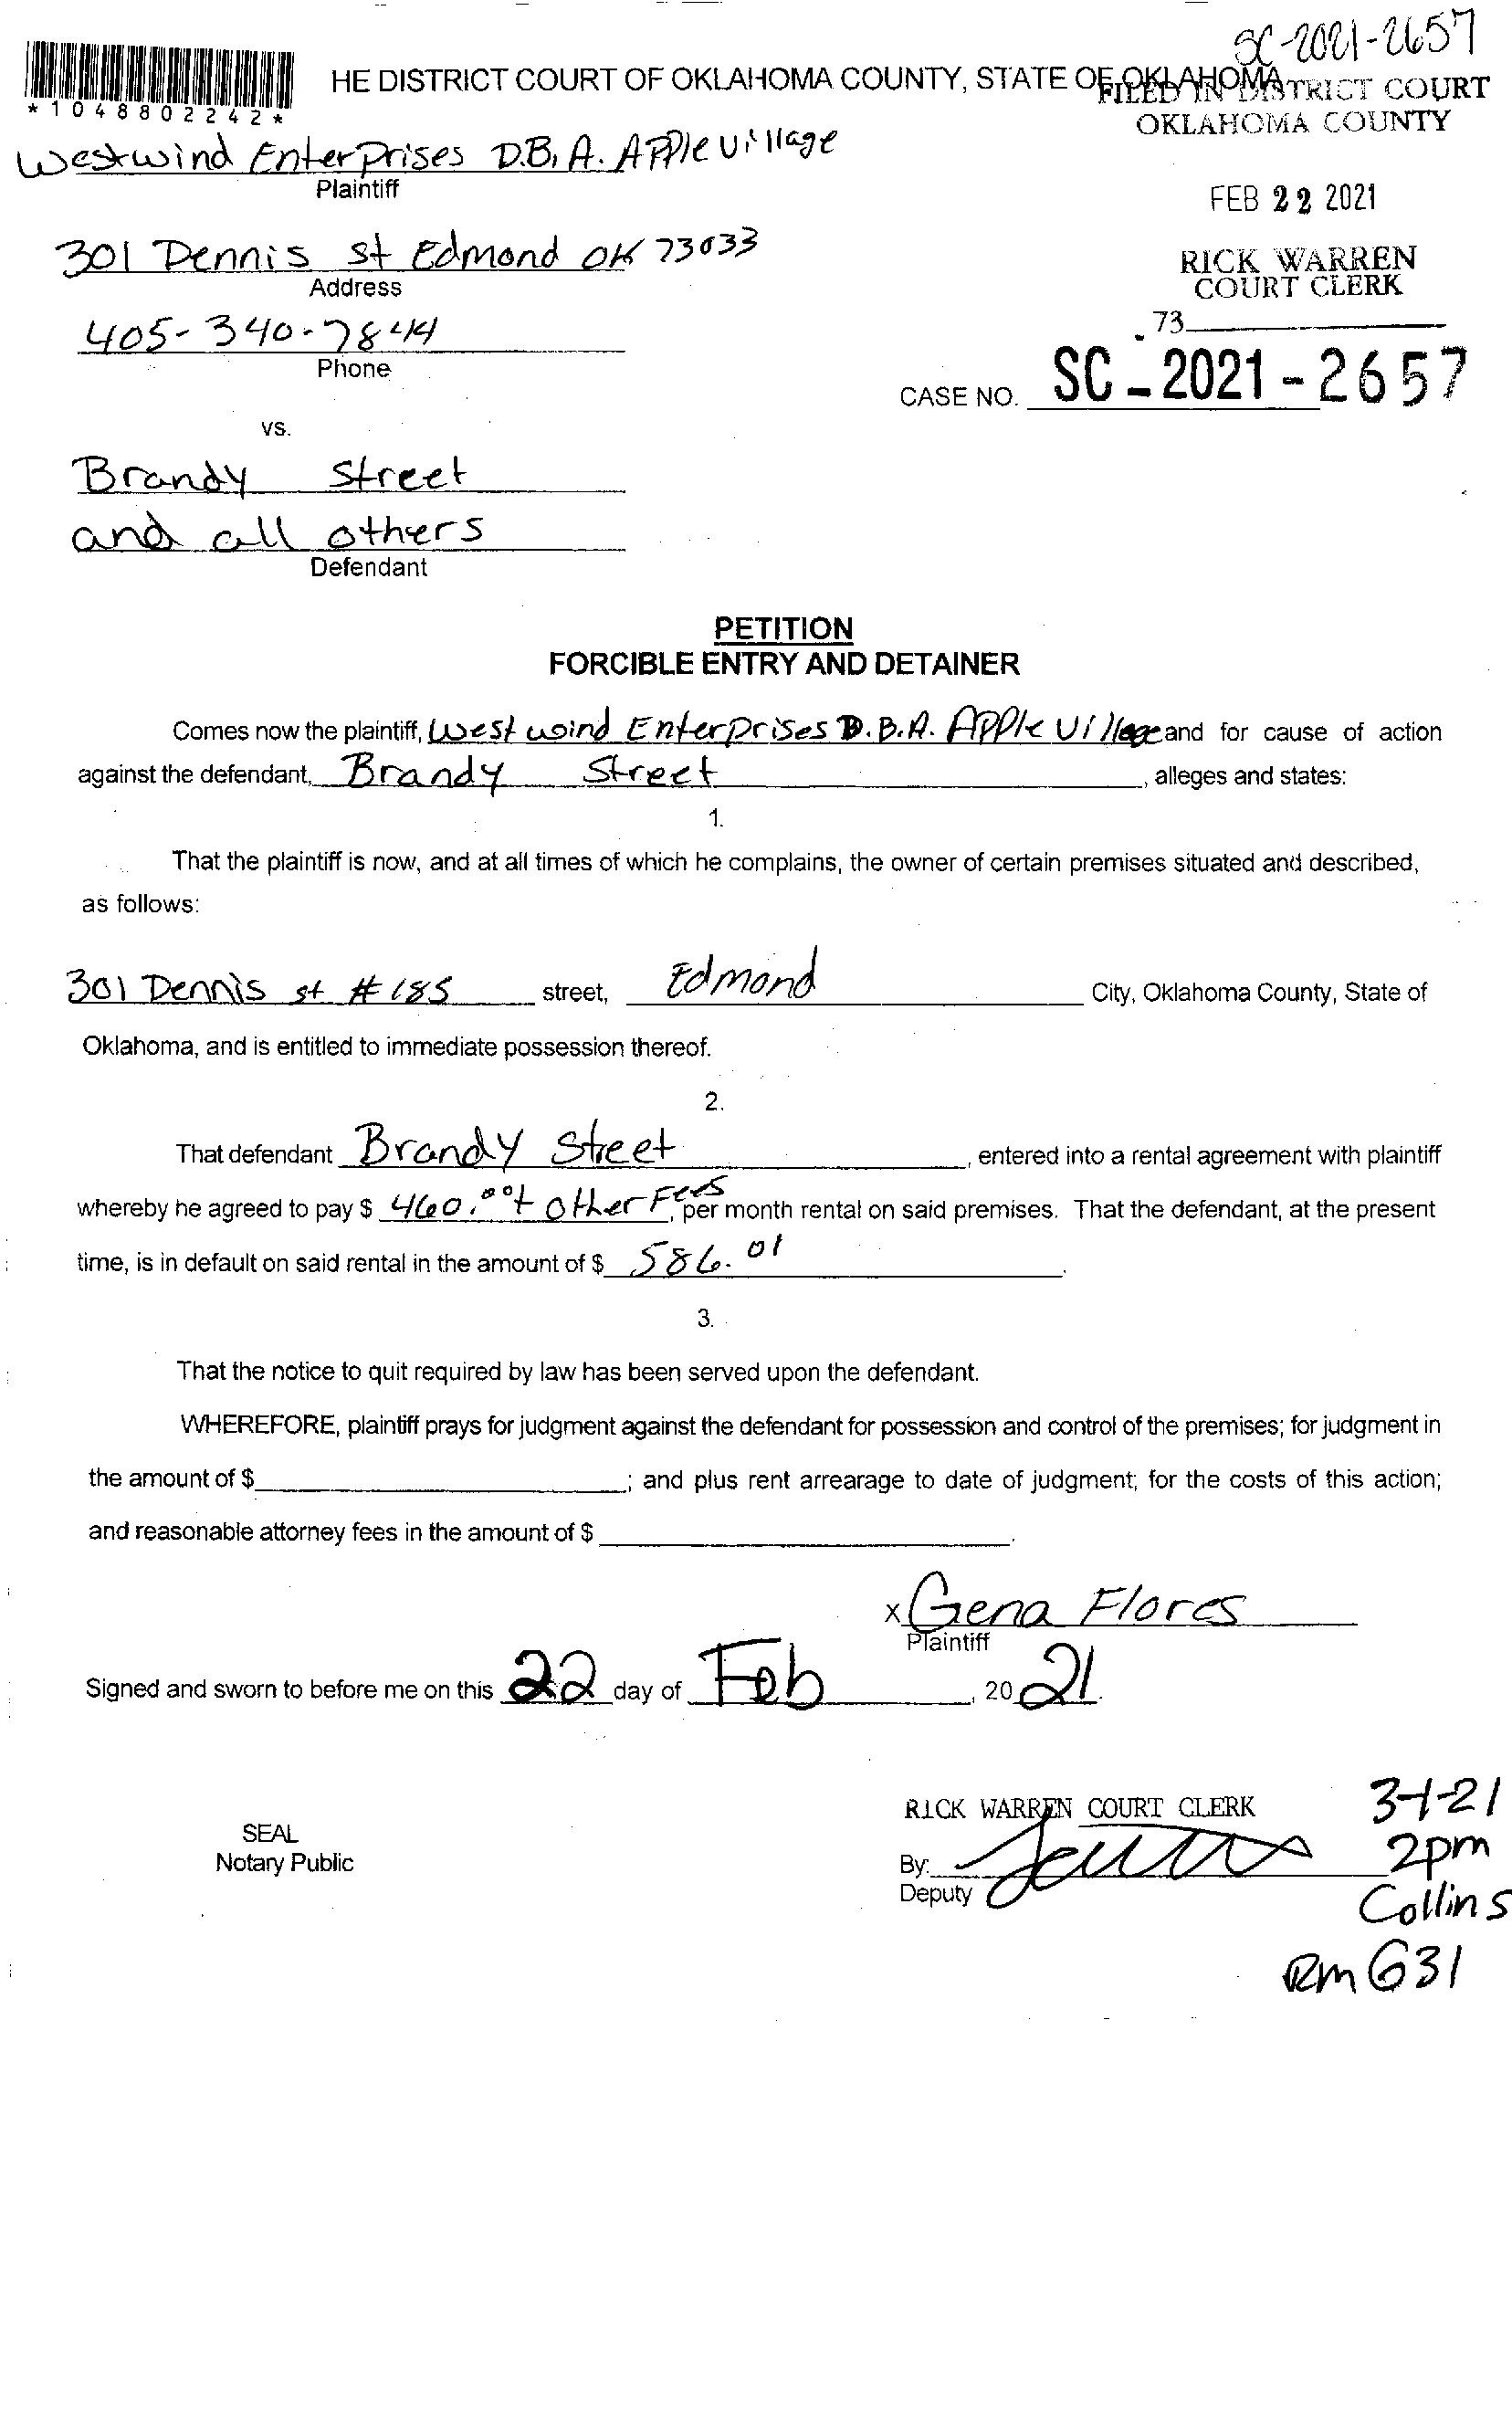 SC-2021-2657
HE DISTRICT COURT OF OKLAHOMA COUNTY, STATE OF OKLAHOMA
FILED IN DISTRICT COURT
*1048802242*
OKLAHOMA COUNTY
Westwind Enterprises D.B.A. Apple village
Plaintiff
FEB 22 2021
301 Dennis st Edmond OK 73033
Address
RICK WARREN
COURT CLERK
405-340-7844
Phone
73
CASE NO. SC-2021-2657
vs.
Brandy Street
and all others
Defendant
PETITION
FORCIBLE ENTRY AND DETAINER
Comes now the plaintiff, West wind Enterprises D.B.A. Apple Village and for cause of action
against the defendant, Brandy Street, alleges and states:
1.
That the plaintiff is now, and at all times of which he complains, the owner of certain premises situated and described,
as follows:
301 Dennis st #185 street, Edmond City, Oklahoma County, State of
Oklahoma, and is entitled to immediate possession thereof.
2.
That defendant Brandy Street, entered into a rental agreement with plaintiff
whereby he agreed to pay $ 460.00 + other Fees, per month rental on said premises. That the defendant, at the present
time, is in default on said rental in the amount of $ 586.01.
3.
That the notice to quit required by law has been served upon the defendant.
WHEREFORE, plaintiff prays for judgment against the defendant for possession and control of the premises; for judgment in
the amount of $ ; and plus rent arrearage to date of judgment; for the costs of this action;
and reasonable attorney fees in the amount of $ .
x Gena Flores
Plaintiff
Signed and sworn to before me on this 22 day of Feb, 2021.
RICK WARREN COURT CLERK
3-1-21
SEAL
Notary Public
By:
2pm
Deputy
Collins
Rm G31